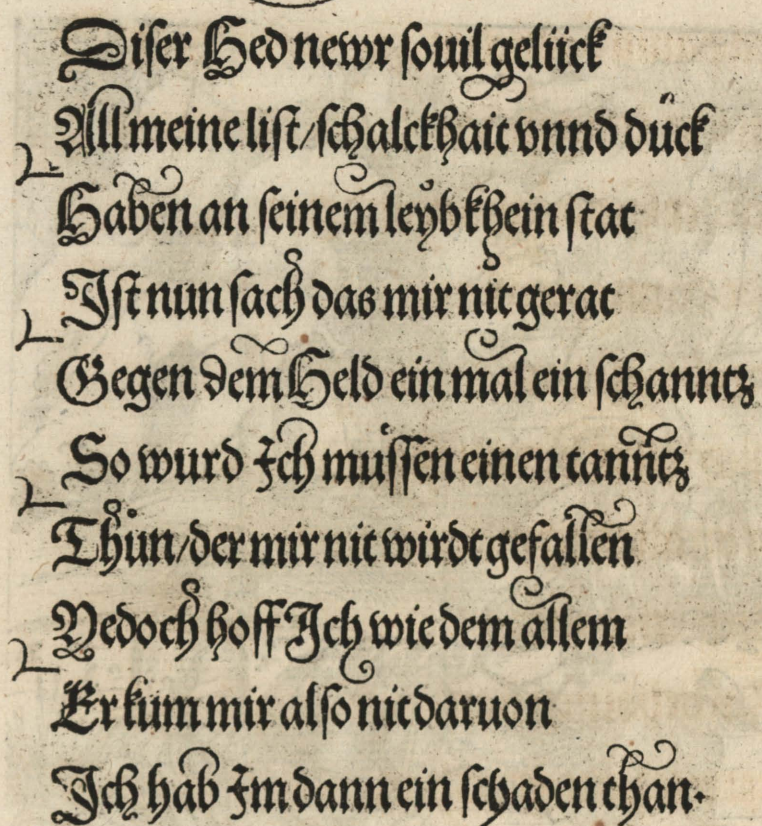 Diser Hed newr souil gelück
All meine list/schalckhait vnnd dück
Haben an seinem leyb khein stat
Ist nun sach das mir nit gerat
Gegen dem Held ein mal ein schanntz
So wurd Ich müssen einen tanntz
Thůn/der mir nit wirdt gefallen
Yedoch hoff Ich wie dem allem
Er kum mir also nit daruon
Ich hab Im dann ein schaden than.